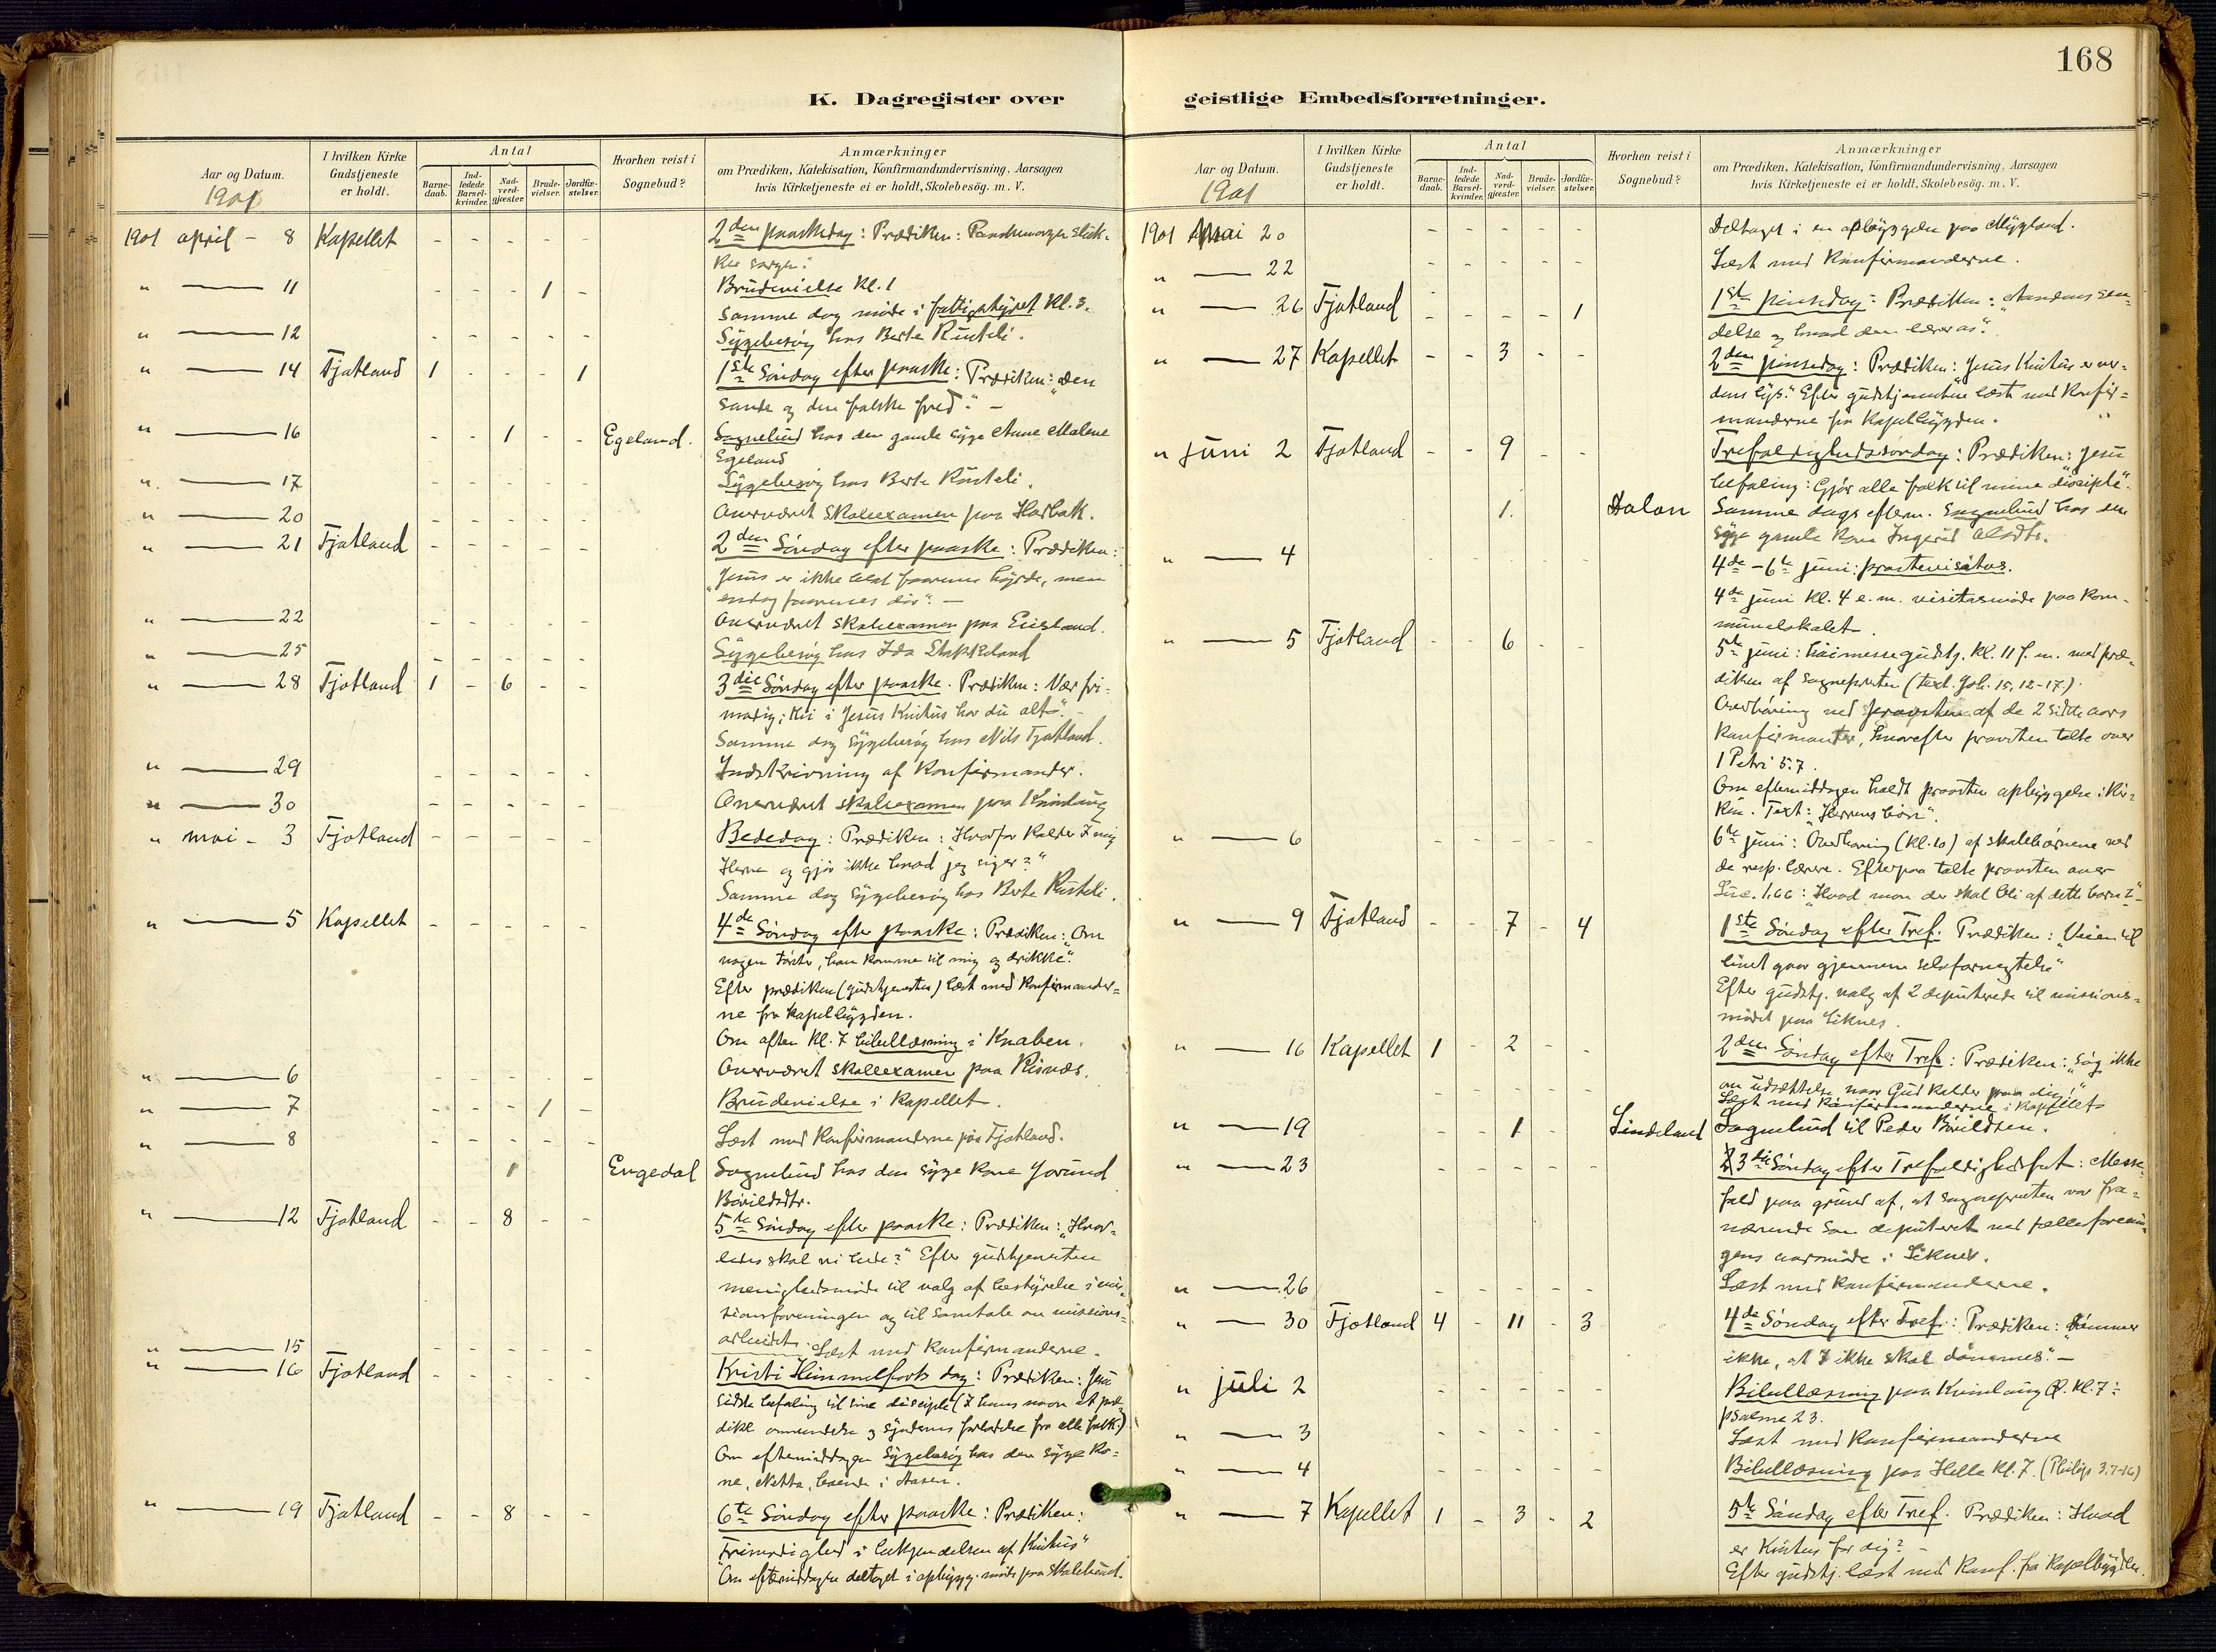 168
K. Dagregister over geistlige Embedsforretninger.
Aar og Datum. 1901
I hvilken Kirke Gudstjeneste er holdt.
Antal
Barne-daab.
Ind-ledede Barsel-kvinder.
Nad-verd-gjæster.
Brude-vielser.
Jordfæ-stelser.
Hvorhen reist i Sognebud?
Anmærkninger
om Prædiken, Katekisation, Konfirmandundervisning, Aarsagen
hvis Kirketjeneste ei er holdt, Skolebesøg. m. V.
1901 april - 8 Kapellet - - - - - 2den paaskedag: Prædiken: Paaskemorgen sluk-
ker sorgen."
" — 11 - - - 1 - Brudevielse Kl. 1
Samme dag møde i fattigstyret Kl. 3.
" — 12 - - - - - Sygebesøg hos Berte Rusteli.
" — 14 Fjotland 1 - - - 1 1ste Søndag efter paaske: Prædiken: "Den
sande og den falske fred." -
" — 16 - - 1 - - Egeland. Sognebud hos den gamle syge Anne Malene
Egeland
" — 17 - - - - - Sygebesøg hos Berte Rusteli.
" — 20 - - - - - Overværet skoleexamen paa
" — 21 Fjotland - - - - - 2den Søndag efter paaske: Prædiken:
"Jesus er ikke blot faarenes hyrde, men
endog faarenes dør". -
" — 22 - - - - - Overværet skoleexamen paa
" — 25 - - - - - Sygebesøg hos Ida Stakkeland
" — 28 Fjotland 1 - 6 - - 3die Søndag efter paaske. Prædiken: Vær fri-
modig; thi i Jesus Kristus har du alt". -
Samme dag sygebesøg hos Nils Fjotland.
" — 29 - - - - - Indskrivning af Konfirmander.
" — 30 - - - - - Overværet skoleexamen paa Kvinlaug
" mai - 3 Fjotland - - - - - Bededag: Prædiken: Hvorfor kalder I mig
Herre og gjør ikke hvad jeg siger?"
Samme dag sygebesøg hos Berte Rusteli.
" — 5 Kapellet - - - - - 4de Søndag efter paaske: Prædiken: "Om
nogen tørster, han komme til mig og drikke".
Efter prædiken (gudstjenesten) læst med Konfirmander-
ne fra Kapelbygden.
Om aften Kl. 7 bibellæsning i Knaben.
" — 6 - - - - - Overværet skoleexamen paa Risnæs.
" — 7 - - - 1 - Brudevielse i Kapellet.
" — 8 - - - - - Læst med Konfirmanderne paa Fjotland.
1 Engedal Sognebud hos den syge kone Jorund
Bårildsdtr.
" — 12 Fjotland - - 8 - - 5te Søndag efter paaske: Prædiken: "Hvor-
ledes skal vi bede?" Efter gudstjenesten
menighedsmøde til valg af bestyrelse i mis-
sionsforeningen og til samtale om missions-
arbeidet.
" — 15 - - - - - Læst med Konfirmanderne.
" — 16 Fjotland - - - - - Kristi Himmelfarts dag: Prædiken: Jesu
sidste befaling til sine disciple (I hans navn at præ-
dike omvendelse og syndernes forladelse for alle folk.)
Om eftermiddagen sygebesøg hos den syge ko-
ne, Netta, boende i Aasen.
" — 19 Fjotland - - 8 - - 6te Søndag efter paaske: Prædiken:
"Frimodighed i bekjendelsen af Kristus"
Om eftermiddagen deltaget i opbygg. møde paa
1901 Mai 20 - - - - - Deltaget i en opbyggelse paa Mygland.
" — 22 - - - - - Læst med Konfirmanderne.
" — 26 Fjotland - - - - 1 1ste pinsedag: Prædiken: "Aandens sen-
delse og hvad den lærer os".
" — 27 Kapellet - - 3 - - 2den pinsedag: Prædiken: "Jesus Kristus er ver-
dens lys." Efter gudstjenesten læst med Konfir-
manderne fra Kapelbygden.
" juni 2 Fjotland - - 9 - - Trefoldighedssøndag: Prædiken: "Jesu
befaling: Gjør alle folk til mine disciple".
1. Dalon Samme dags efterm. Sognebud hos den
syge gamle kone Ingerid
" — 4 - - - - - 4de - 6te juni: prostevisitas.
4de juni Kl. 4 e.m. visitasmøde paa Kom-
munelokalet.
" — 5 Fjotland - - 6 - - 5te juni: Høimessegudstj. Kl. 11 f.m. med præ-
diken af sognepresten (text. Joh. 15, 12-17).
Overhøring ved provsten af de 2 sidste aars
Konfirmanter, hvorefter provsten talte over
1 Petri 5.7.
Om eftermiddagen holdt provsten opbyggelse i Kir-
ken. Text: "Herrens bøn".
" — 6 - - - - - 6te juni: Overhøring (Kl. 10) af skolebørnene ved
de resp. lærere. Efterpaa talte provsten over
Luc. 1.66: "Hvad mon der skal bli af dette barn?"
" — 9 Fjotland - - 7 - 4 1ste Søndag efter Tref. Prædiken: "Veien til
livet gaar gjennem selvfornegtelse"
Efter gudstj. valg af 2 deputerede til missions-
mødet paa Liknes.
" — 16 Kapellet 1 - 2 - - 2den Søndag efter Tref.: Prædiken: "Søg ikke
om udsættelse naar Gud kalder paa dig!"
Læst med Konfirmanderne i Kapellet
" — 19 - - 1 - Lindeland Sognebud til Peder Bårildsen.
" — 23 3die Søndag efter Trefoldighedsfest: Messe-
fald paa grund af, at sognepresten var fra-
værende som deputeret ved fællesforenin-
gens aarsmøde i Liknes.
" — 26 - - - - - Læst med Konfirmanderne.
" — 30 Fjotland 4 - 11 - 3 4de Søndag efter Tref.: Prædiken: "Dømmer
ikke, at I ikke skal dømmes". -
" juli 2 - - - - - Bibellæsning paa Kvinlaug Kl. 7:
psalme 23.
" — 3 - - - - - Læst med Konfirmanderne
" — 4 - - - - - Bibellæsning paa Helle Kl. 7. (Philip. 3.7-16)
" — 7 Kapellet 1 - 3 - 2 5te Søndag efter Tref. Prædiken: Hvad
er Kristus for dig? -
Efter gudstj. læst med Konf. fra Kapelbygden.